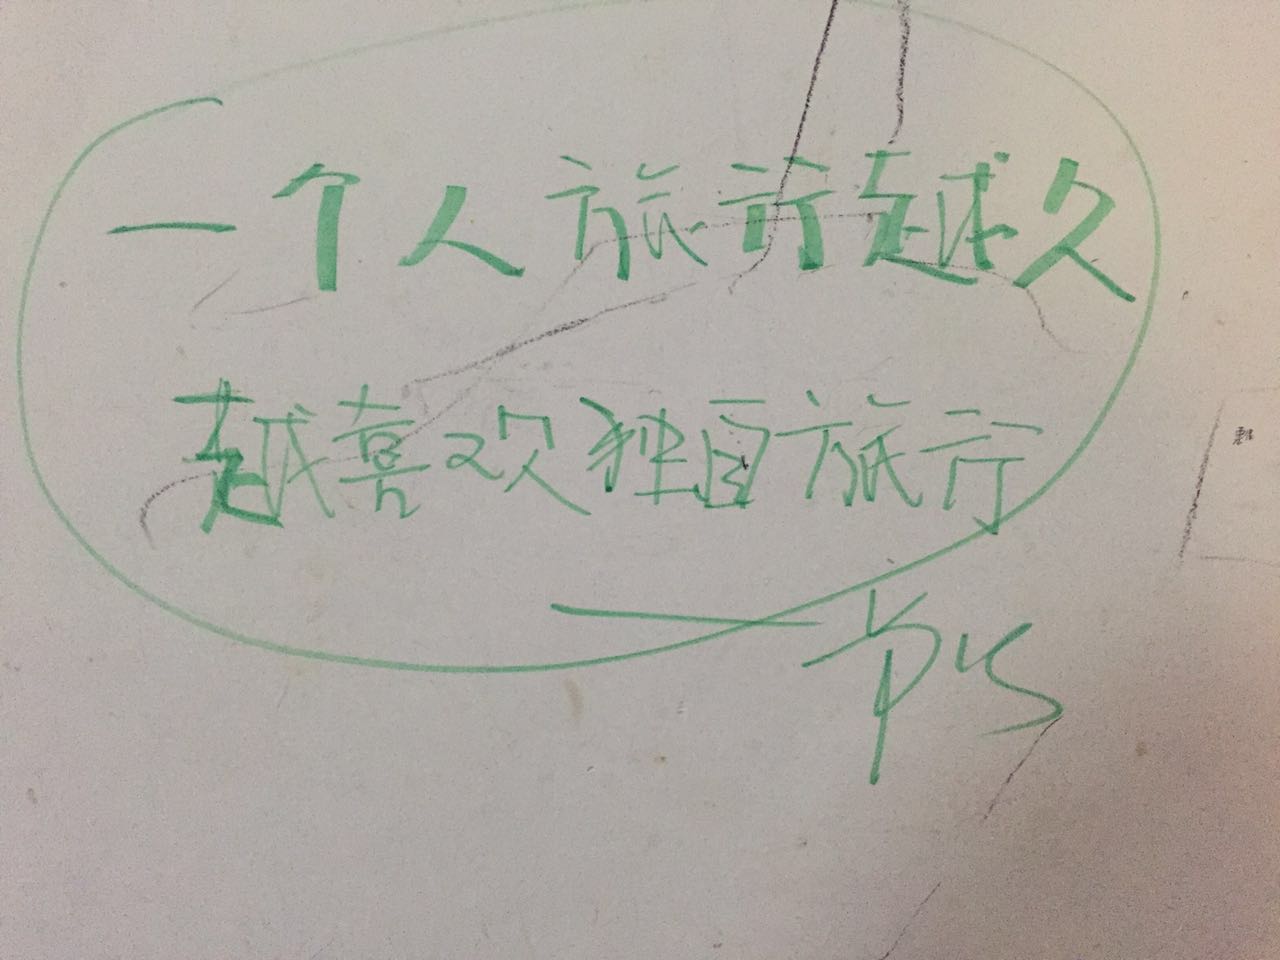 一个人旅行越久
越喜欢独自旅行